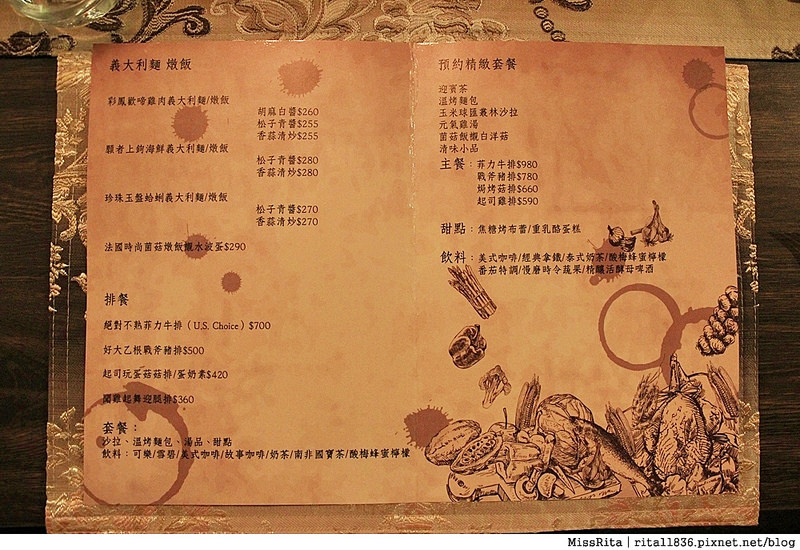 義大利麵 燉飯
彩鳳歡啼雞肉義大利麵/燉飯
胡麻白醬$260
松子青醬$255
香蒜清炒$255
願者上鉤海鮮義大利麵/燉飯
松子青醬$280
香蒜清炒$280
珍珠玉盤蛤蜊義大利麵/燉飯
松子青醬$270
香蒜清炒$270
法國時尚菌菇燉飯襯水波蛋$290
排餐
絕對不熟菲力牛排（U.S. Choice）$700
好大乙根戰斧豬排$500
起司玩蛋菇菇排/蛋奶素$420
聞雞起舞迎腿排$360
套餐：
沙拉、溫烤麵包、湯品、甜點
飲料：可樂/雪碧/美式咖啡/故事咖啡/奶茶/南非國寶茶/酸梅蜂蜜檸檬
預約精緻套餐
迎賓茶
溫烤麵包
玉米球匯叢林沙拉
元氣雞湯
菌菇飯襯白洋菇
清味小品
主餐：菲力牛排$980
戰斧豬排$780
焗烤菇排$660
起司雞排$590
甜點：焦糖烤布蕾/重乳酪蛋糕
飲料：美式咖啡/經典拿鐵/泰式奶茶/酸梅蜂蜜檸檬
番茄特調/慢磨時令蔬果/精釀活酵母啤酒
MissRita | rita11836.pixnet.net/blog